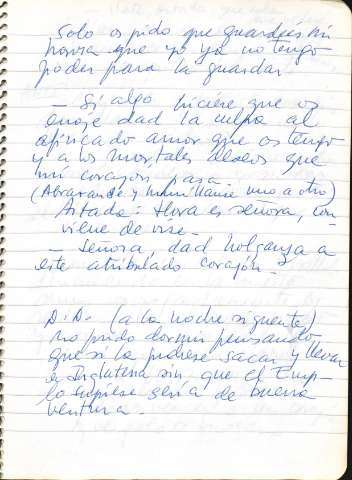 Solo os pido que guardéis mi
honra que yo ya no tengo
poder para la guardar
— Si algo hiciere que os
enoje dad la culpa al
ahincado amor que os tengo
y a los mortales deseos que
mi corazón pasa
(Abrazarse y humillarse uno a otro)
Artada: Hora es señora, con
viene de irse -
— Señora, dad holganza a
este atribulado corazón -
D.D. (a la noche siguiente)
no pudo dormir pensando
que si la pudiese sacar y llevar
a Inglaterra sin que el Emp-
lo supiese sería de buena
ventura -